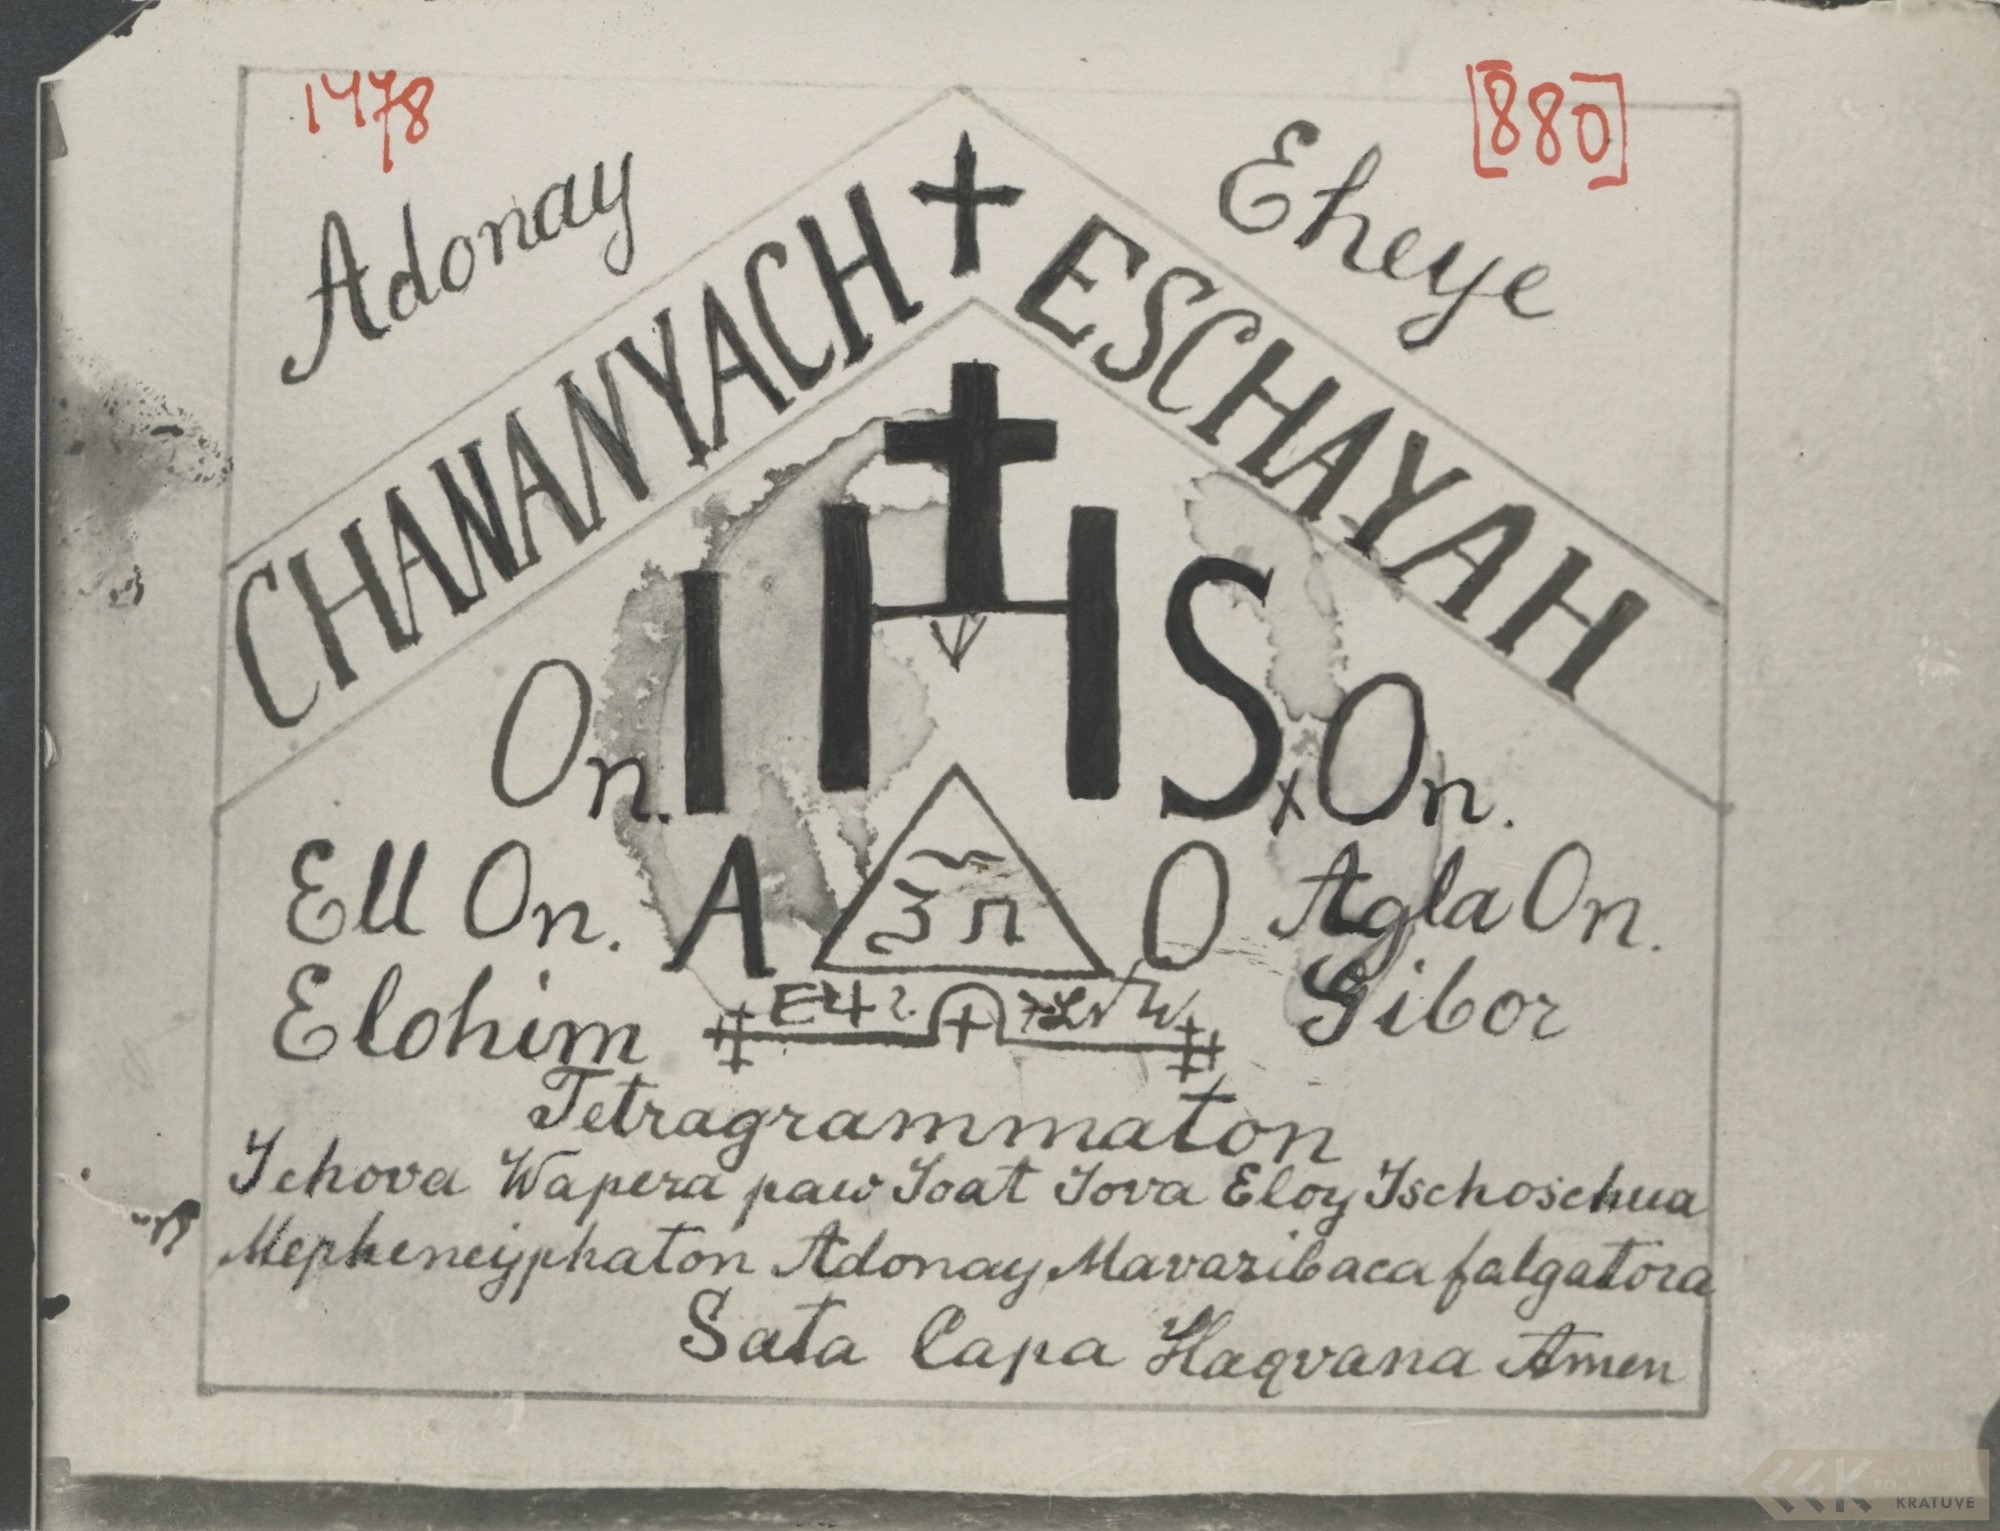 1478
[880]
Adonay
Eheye
CHANANYACH + ESCHAYAH
On. I H S x On.
Ell On. A O Agla On.
Elohim
Gibor
Tetragrammaton
Jehova Wapera paw Joat Jova Eloy Jschoschua
Mepheneyphaton Adonay Mavaribaca falgatora
Sata Capa Haqvana Amen
LATVIEŠU
FOLKLORAS
KRATUVE